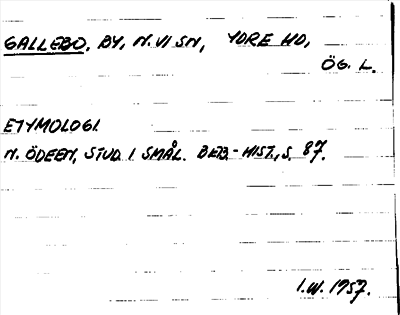 GALLEBO, BY, N. VI SN, YDRE HD,
ÖG. L.
ETYMOLOGI.
N. ÖDEEN, STUD. I SMÅL. BEB.-HIST., S. 87.
I.W. 1957.